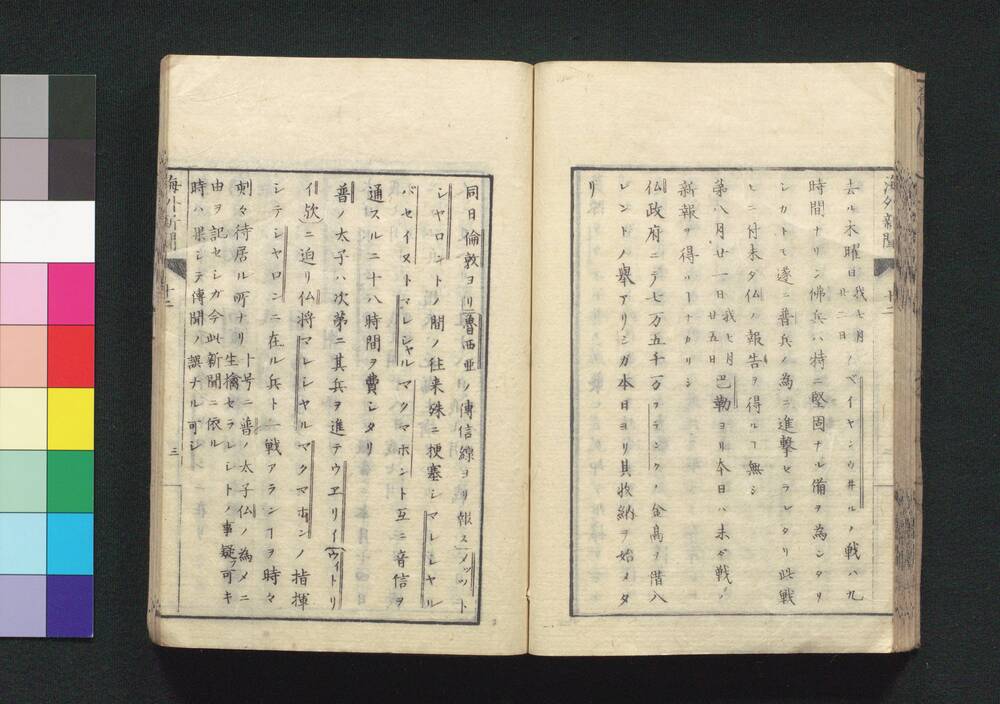 海外新聞 十二
去ル木曜日我七月廿二日バイヤンウ井ルノ戦ハ九
時間ナリシ佛兵ハ特ニ堅固ナル備ヲ為シタリ
シカトモ遂ニ普兵ノ為ニ進撃セラレタリ此戦
ヒニ付未タ仏ノ報告ヲ得ルヿ無シ
第八月廿一日我七月廿五日巴勒ヨリ本日ハ未ダ戦ノ
新報ヲ得ルヿナカリシ
仏政府ニテ七万五千万フランクノ金高ヲ借入
レントノ舉アリシガ本日ヨリ其收納ヲ始メタ
リ
同日倫敦ヨリ魯西亜ノ傳信線ヨリノ報スメッツト
シヤロントノ間ノ往来殊ニ梗塞シマレシヤル
バセイヌトマレシャルマクマホント互ニ音信ヲ
通スルニ十八時間ヲ費シタリ
普ノ太子ハ次第ニ其兵ヲ進テウヱリイ(ウイトリ
イ歟)ニ迫リ仏将マレシヤルマクマホンノ指揮
シテシヤロンニ在ル兵ト一戦アランヿヲ時々
刻々待居ル所ナリ
ト号ニ普ノ太子仏ノ為メニ
生擒セラレシトノ事疑フ可キ
由ヲ記セシガ今此新聞ニ依ル
時ハ果シテ傳聞ノ誤ナル可シ
三
海外新聞 十二